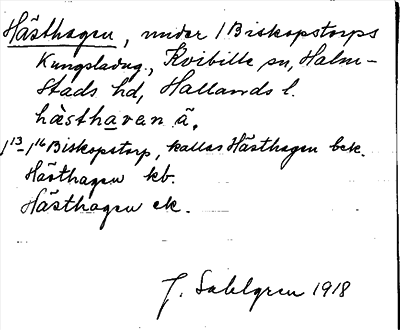 Hästhagen, under 1 Biskopstorps
Kungsladug., Kvibille sn, Halm-
stads hd, Hallands l.
hàsthavan ä.
1¹³–1¹⁶ Biskopstorp, kallas Hästhagen bek.
Hästhagen kb.
Hästhagen ek.
J. Sahlgren 1918